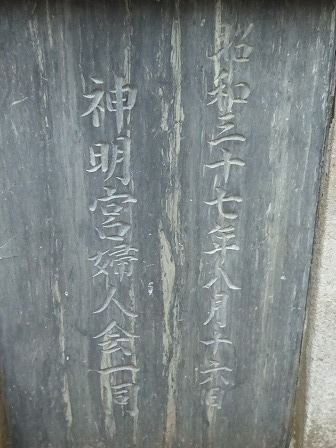 昭和三十七年八月十六日
神明宮婦人会一同